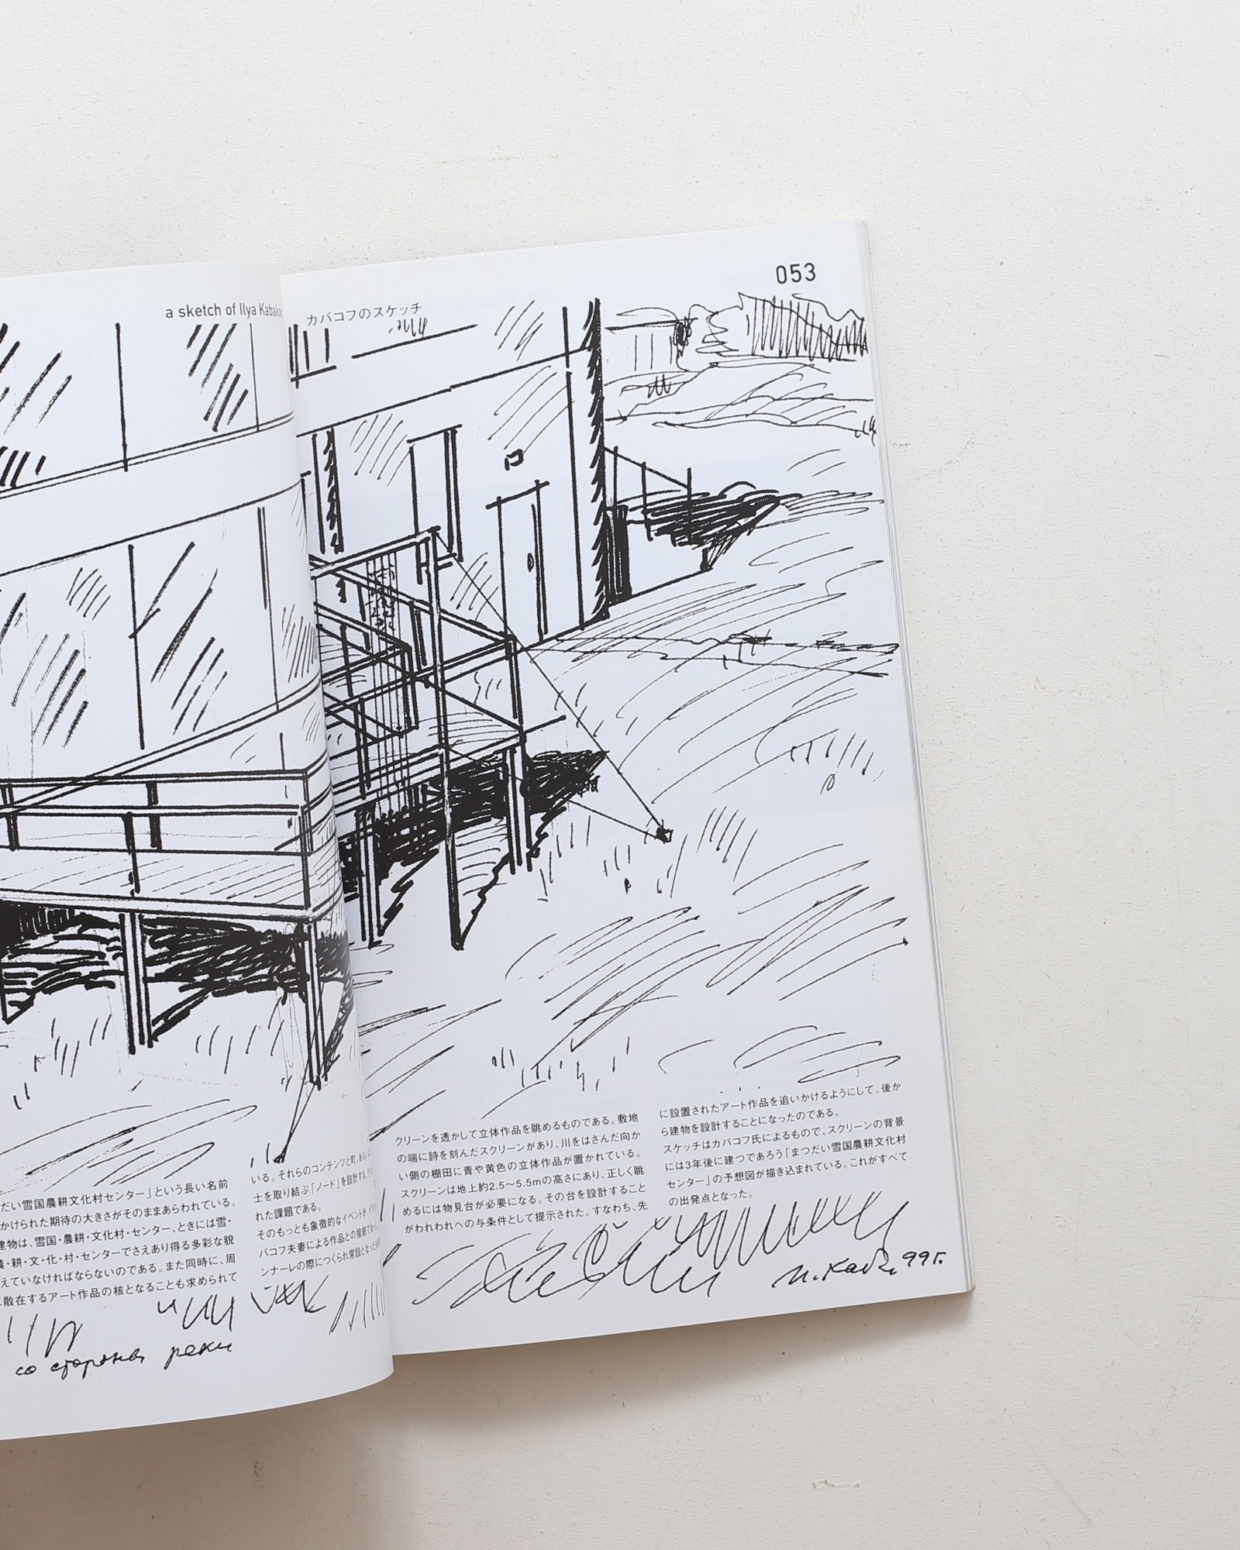 053
a sketch of Ilya Kabako
カバコフのスケッチ
だい雪国農耕文化村センター」という長い名前
かけられた期待の大きさがそのままあらわれている。
建物は、雪国・農耕・文化村・センター、ときには雪・
農・耕・文・化・村・センターでさえあり得る多彩な貌
えていなければならないのである。また同時に、周
散在するアート作品の核となることも求められて
いる。それらのコンテンツと
士を取り結ぶ「ノード」を設計する
れた課題である。
そのもっとも象徴的なイベントが、
バコフ夫妻による作品との接続であ
ンナーレの際につくられ常設となった
クリーンを透かして立体作品を眺めるものである。敷地
の端に詩を刻んだスクリーンがあり、川をはさんだ向か
い側の棚田に青や黄色の立体作品が置かれている。
スクリーンは地上約2.5〜5.5mの高さにあり、正しく眺
めるには物見台が必要になる。その台を設計すること
がわれわれへの与条件として提示された。すなわち、先
に設置されたアート作品を追いかけるようにして、後か
ら建物を設計することになったのである。
スケッチはカバコフ氏によるもので、スクリーンの背景
には3年後に建つであろう「まつだい雪国農耕文化村
センター」の予想図が描き込まれている。これがすべて
の出発点となった。
со стороны реки
И. Каб. 99 г.